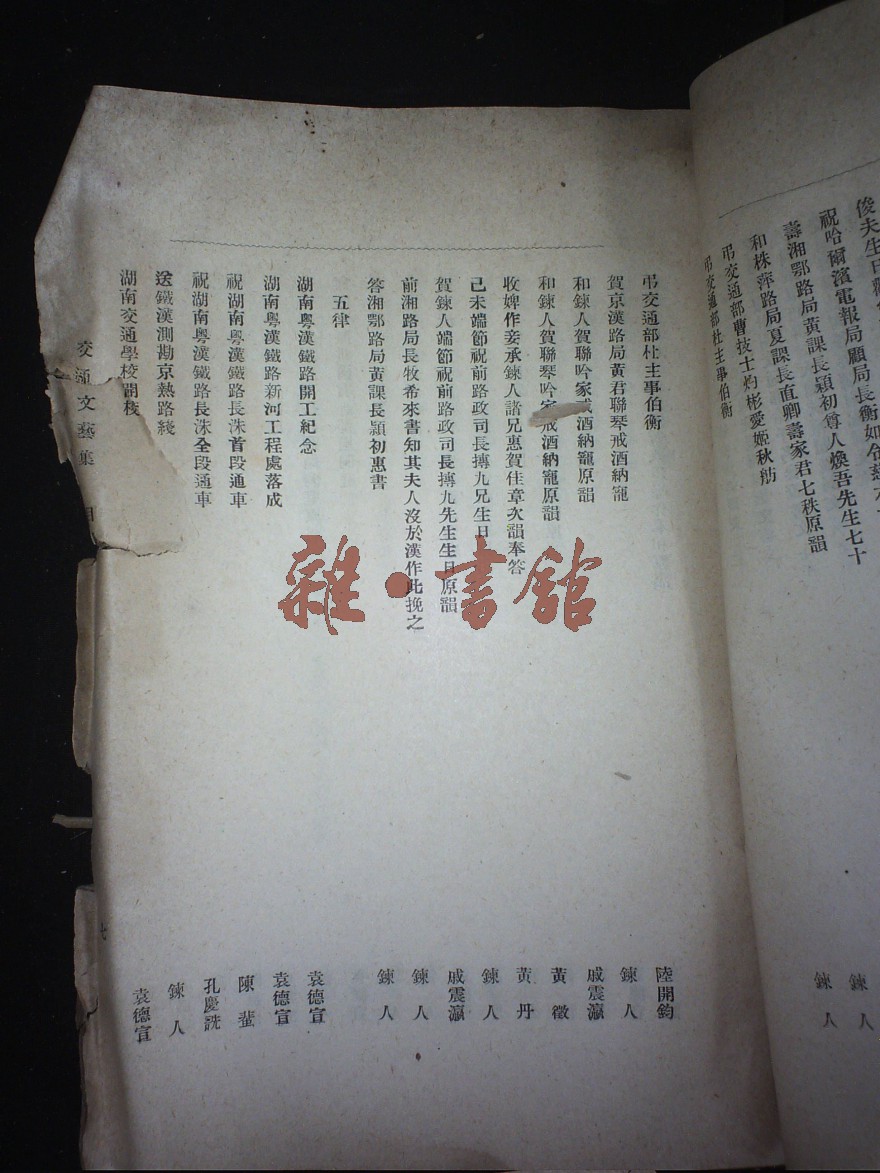 俊夫生日
祝哈爾濱電報局顧局長衡如
壽湘鄂路局黃課長穎初尊人煥吾先生七十
和株萍路局夏課長直卿壽家君七秩原韻
弔交通部曹技士灼彬愛姬秋舫
弔交通部杜主事伯衡
鍊人
鍊人
弔交通部杜主事伯衡 陸開鈞
賀京漢路局黃君聯琴戒酒納寵 鍊人
和鍊人賀聯吟家戒酒納寵原韻 戚震瀛
和鍊人賀聯琴吟家戒酒納寵原韻 黃徵
收婢作妾承鍊人諸兄惠賀佳章次韻奉答 黃丹
己未端節祝前路政司長摶九兄生日 鍊人
賀鍊人端節祝前路政司長摶九先生生日原韻 戚震瀛
前湘路局長牧希來書知其夫人沒於漢作此挽之 鍊人
答湘鄂路局黃課長穎初惠書 鍊人
五律
湖南粵漢鐵路開工紀念 袁德宣
湖南粵漢鐵路新河工程處落成 袁德宣
祝湖南粵漢鐵路長洙首段通車 陳蜚
祝湖南粵漢鐵路長洙全段通車 孔慶詵
送鐵漢測勘京熱路綫 鍊人
湖南交通學校開校 袁德宣
交通文藝集 目
雜·書館